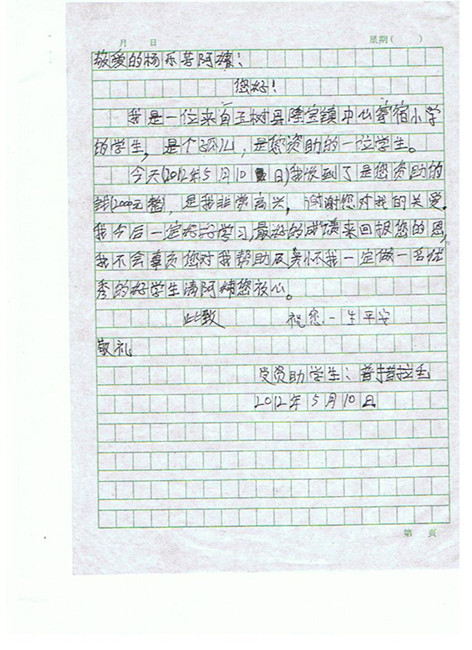 月 日 星期( )
敬爱的杨乐芸阿姨:
您好!
我是一位来自玉树县隆宝镇中心寄宿小学
的学生,是个孤儿,是您资助的一位学生。
今天(2012年5月10日)我收到了是您资助的
钱(2000元整),是我非常高兴,谢谢您对我的关爱。
我今后一定好好学习,最好的成绩来回报您的恩,
我不会辜负您对我帮助及关怀我一定做一名优
秀的好学生请阿姨您放心。
此致 祝您一生平安
敬礼
受资助学生:普措拉毛
2012年5月10日
第 页